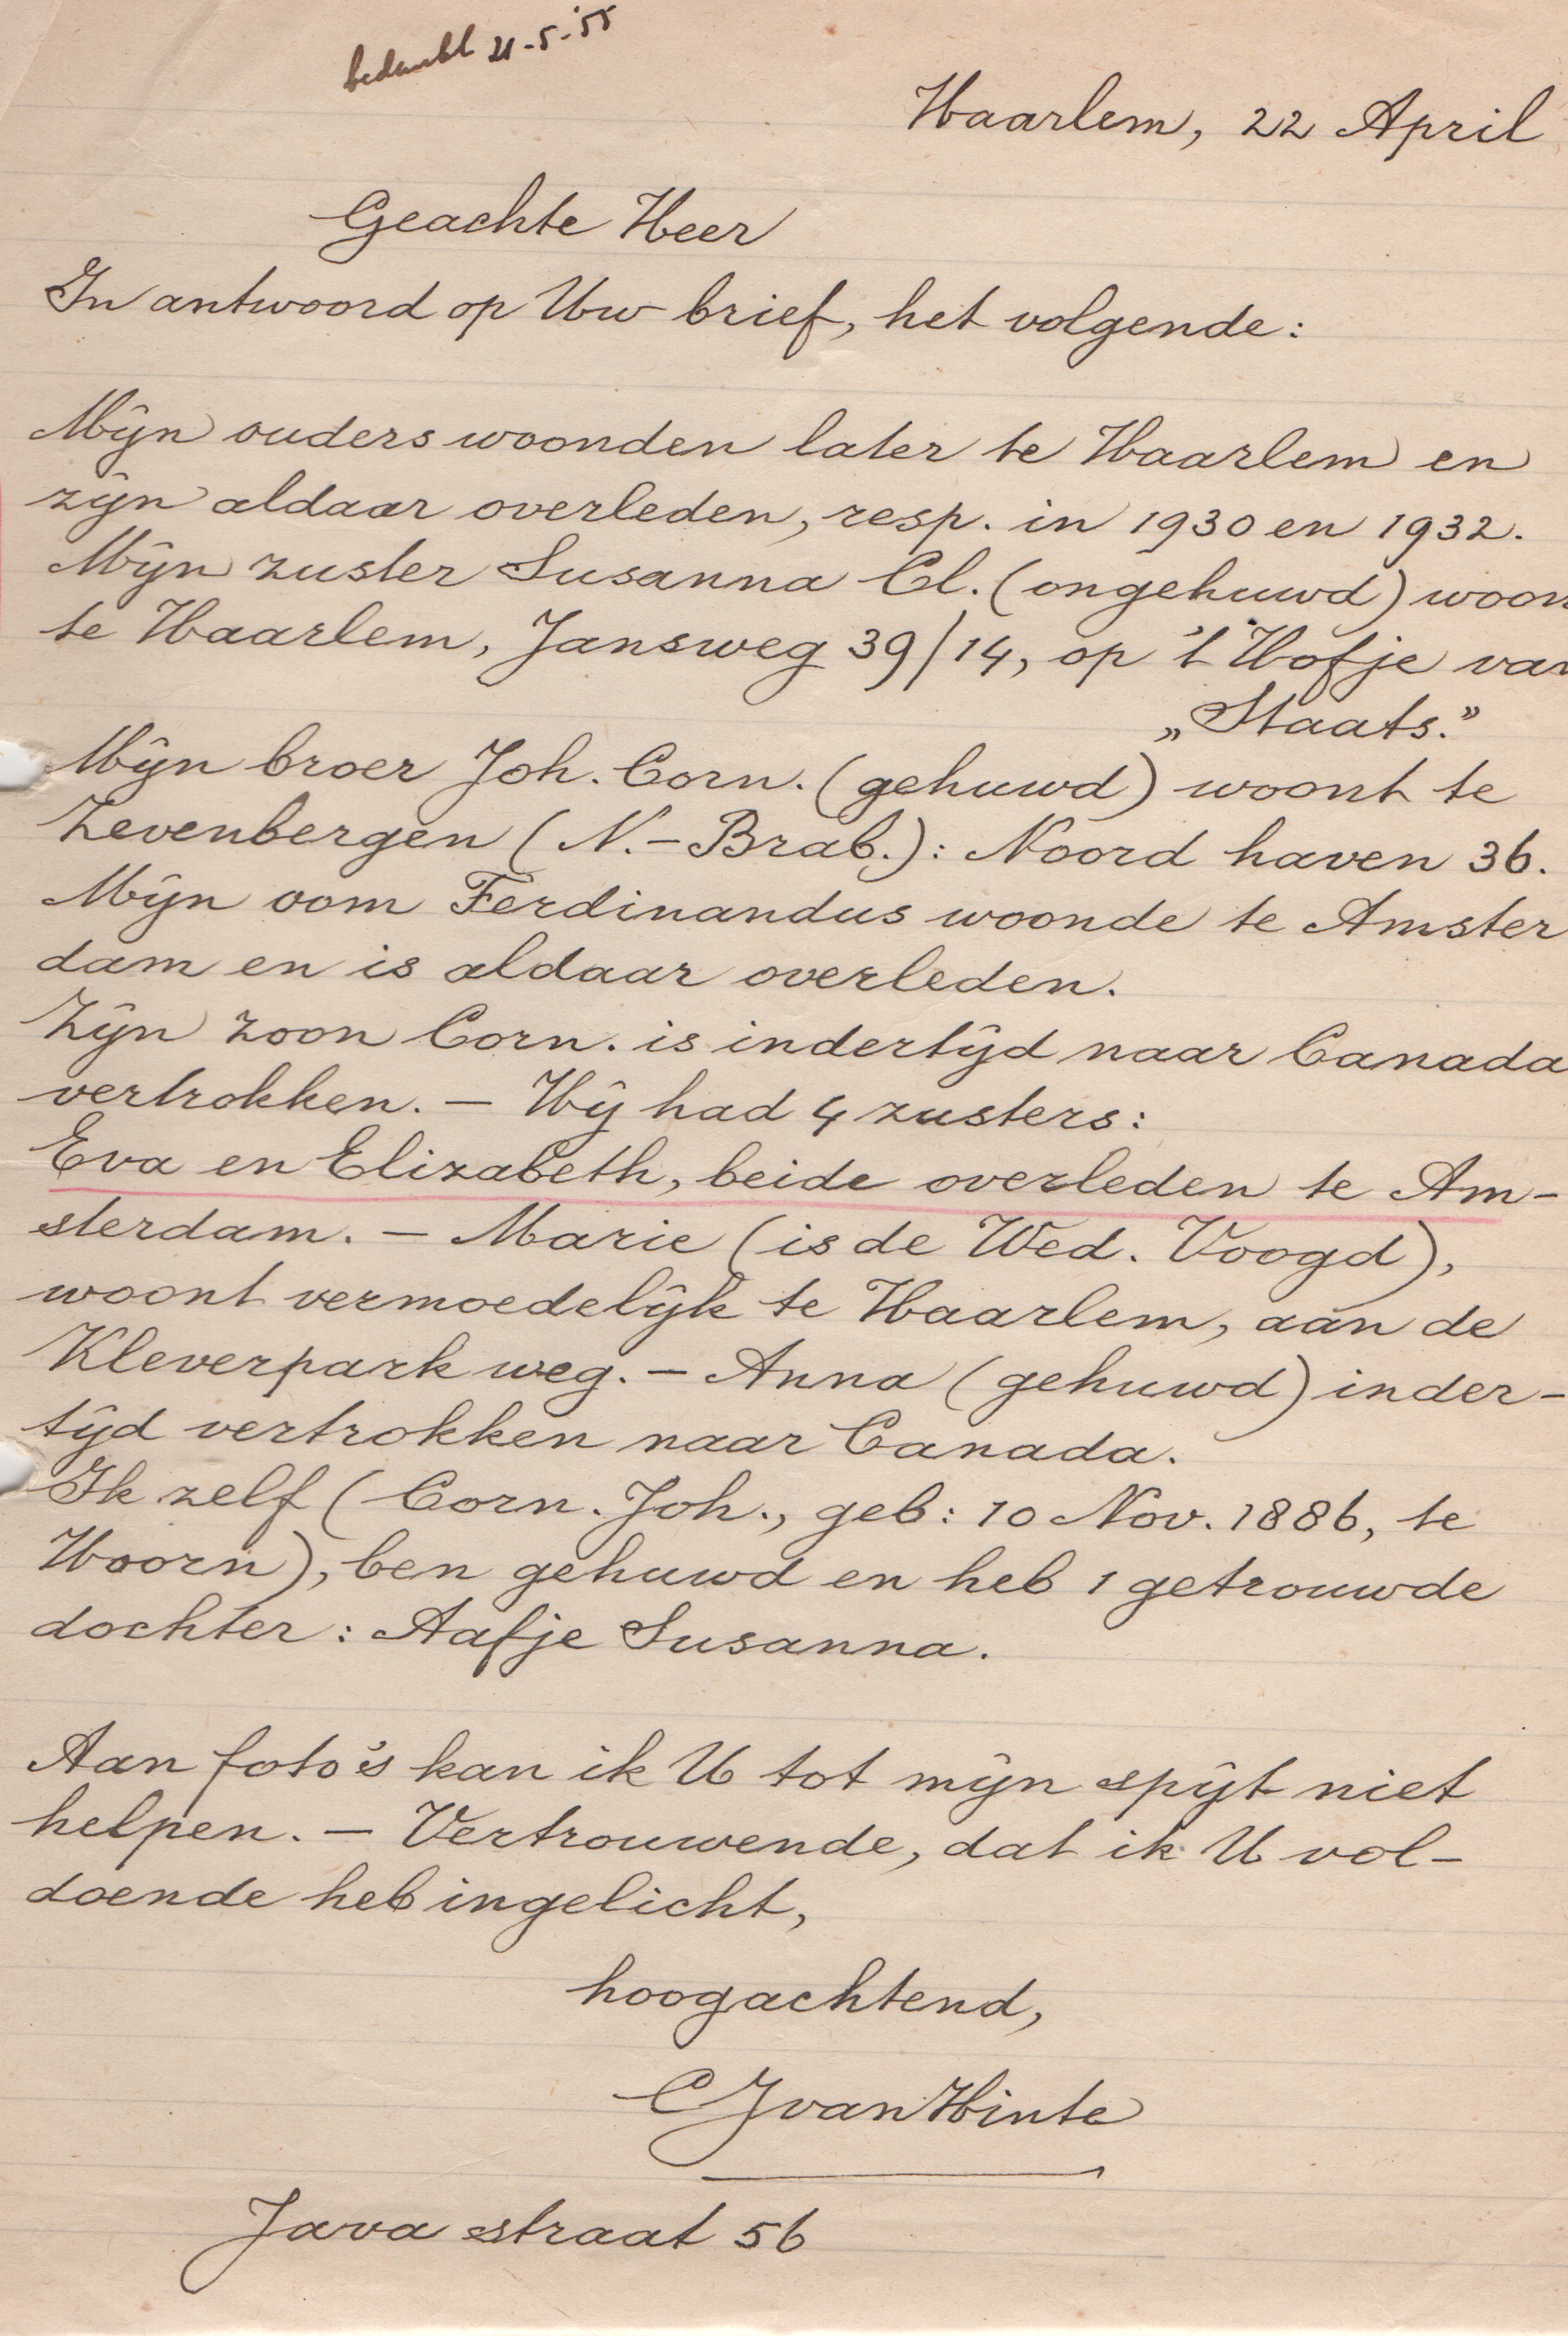 bedankt 21-5-'55
Haarlem, 22 April
Geachte Heer
In antwoord op Uw brief, het volgende:
Mijn ouders woonden later te Haarlem en
zijn aldaar overleden, resp. in 1930 en 1932.
Mijn zuster Susanna Cl. (ongehuwd) woon
te Haarlem, Jansweg 39/14, op 't Hofje van
„Staats.”
Mijn broer Joh. Corn. (gehuwd) woont te
Zevenbergen (N.-Brab.): Noord haven 36.
Mijn oom Ferdinandus woonde te Amster
dam en is aldaar overleden.
Zijn zoon Corn. is indertijd naar Canada
vertrokken. — Hij had 4 zusters:
Eva en Elizabeth, beide overleden te Am-
sterdam. — Marie (is de Wed. Voogd),
woont vermoedelijk te Haarlem, aan de
Kleverpark weg. — Anna (gehuwd) inder-
tijd vertrokken naar Canada.
Ik zelf (Corn. Joh., geb: 10 Nov. 1886, te
Hoorn), ben gehuwd en heb 1 getrouwde
dochter: Aafje Susanna.
Aan foto's kan ik U tot mijn spijt niet
helpen. — Vertrouwende, dat ik U vol-
doende heb ingelicht,
hoogachtend,
CJ van Hinte
Java straat 56